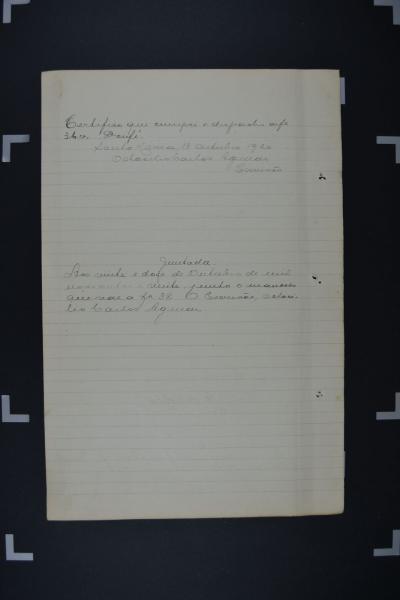 Certifico que cumpri o despacho a fs
36 v. Dou fé.
Santo 13 Outubro 1920
Octacilio Carlos Aguiar
Escrivão
Juntada
Aos vinte e dois de Outubro de mil
novecentos e vinte, junto o
que vae a fs 38. O Escrivão, Octaci-
lio Carlos Aguiar